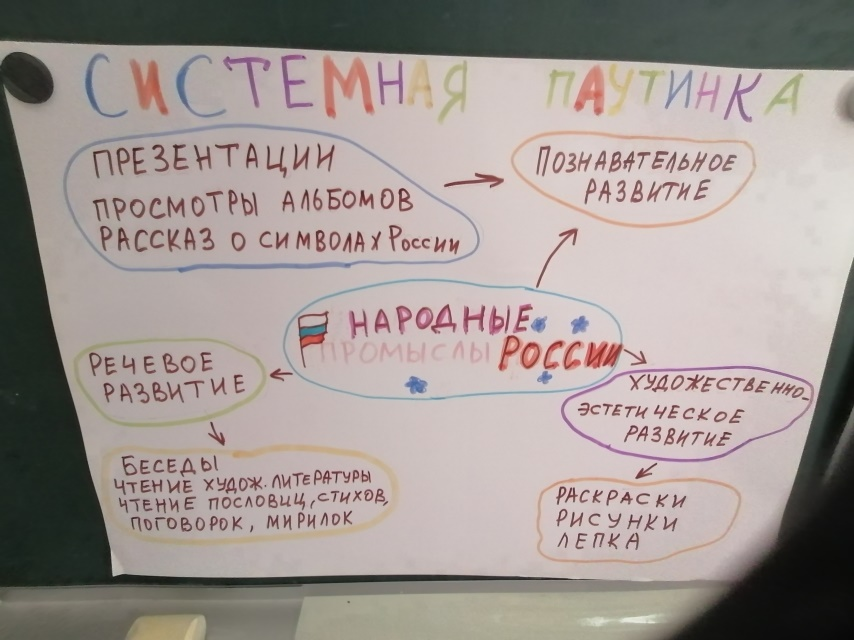 СИСТЕМНАЯ ПАУТИНКА
ПРЕЗЕНТАЦИИ
ПРОСМОТРЫ АЛЬБОМОВ
РАССКАЗ О СИМВОЛАХ РОССИИ
ПОЗНАВАТЕЛЬНОЕ
РАЗВИТИЕ
НАРОДНЫЕ
ПРОМЫСЛЫ РОССИИ
РЕЧЕВОЕ
РАЗВИТИЕ
ХУДОЖЕСТВЕННО-
ЭСТЕТИЧЕСКОЕ
РАЗВИТИЕ
БЕСЕДЫ
ЧТЕНИЕ ХУДОЖ. ЛИТЕРАТУРЫ
ЧТЕНИЕ ПОСЛОВИЦ, СТИХОВ,
ПОГОВОРОК, МИРИЛОК
РАСКРАСКИ
РИСУНКИ
ЛЕПКА